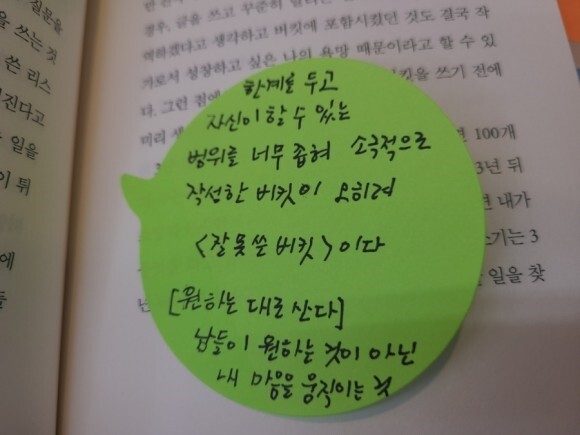 질문을
경우, 글을 쓰고 꾸준히
버킷에 포함시켰던 것도 결국 작
을 쓰는 것
려하겠다고 생각하고
쓴 리스
가로서 성장하고 싶은 나의 욕망 때문이라고 할 수 있
진다고
다. 그런 점에
버킷을 쓰기 전에
일을
미리
100개
이 뒤
3년 뒤
내가
쓰기는 3
에
일을 찾
는
들
한계를 두고
자신이 할 수 있는
범위를 너무 좁혀 소극적으로
작성한 버킷이 오히려
<잘못 쓴 버킷>이다
[원하는 대로 산다]
남들이 원하는 것이 아닌
내 마음을 움직이는 것